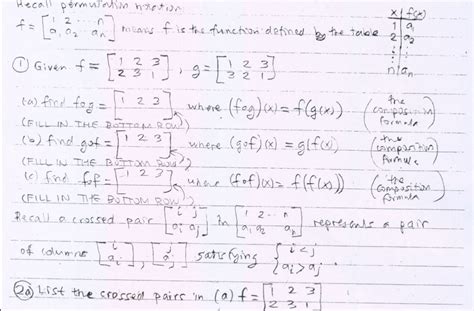 Recall permutation notation
f = [1 2 ... n / a₁ a₂ ... aₙ] means f is the function defined by the table
x | f(x)
1 | a₁
2 | a₂
⋮ ⋮
n | aₙ
① Given f = [1 2 3 / 2 3 1], g = [1 2 3 / 3 2 1]
(a) find fog = [1 2 3 / ], where (fog)(x) = f(g(x)) (the composition formula)
(FILL IN THE BOTTOM ROW)
(b) find gof = [1 2 3 / ], where (gof)(x) = g(f(x)) (the composition formula)
(FILL IN THE BOTTOM ROW)
(c) find fof = [1 2 3 / ], where (fof)(x) = f(f(x)) (the composition formula)
(FILL IN THE BOTTOM ROW)
Recall a crossed pair [i j / aᵢ aⱼ] in [1 2 ... n / a₁ a₂ aₙ] represents a pair
of columns [i / aᵢ], [j / aⱼ] satisfying { i < j / aᵢ > aⱼ.
②a) List the crossed pairs in (a) f = [1 2 3 / 2 3 1]